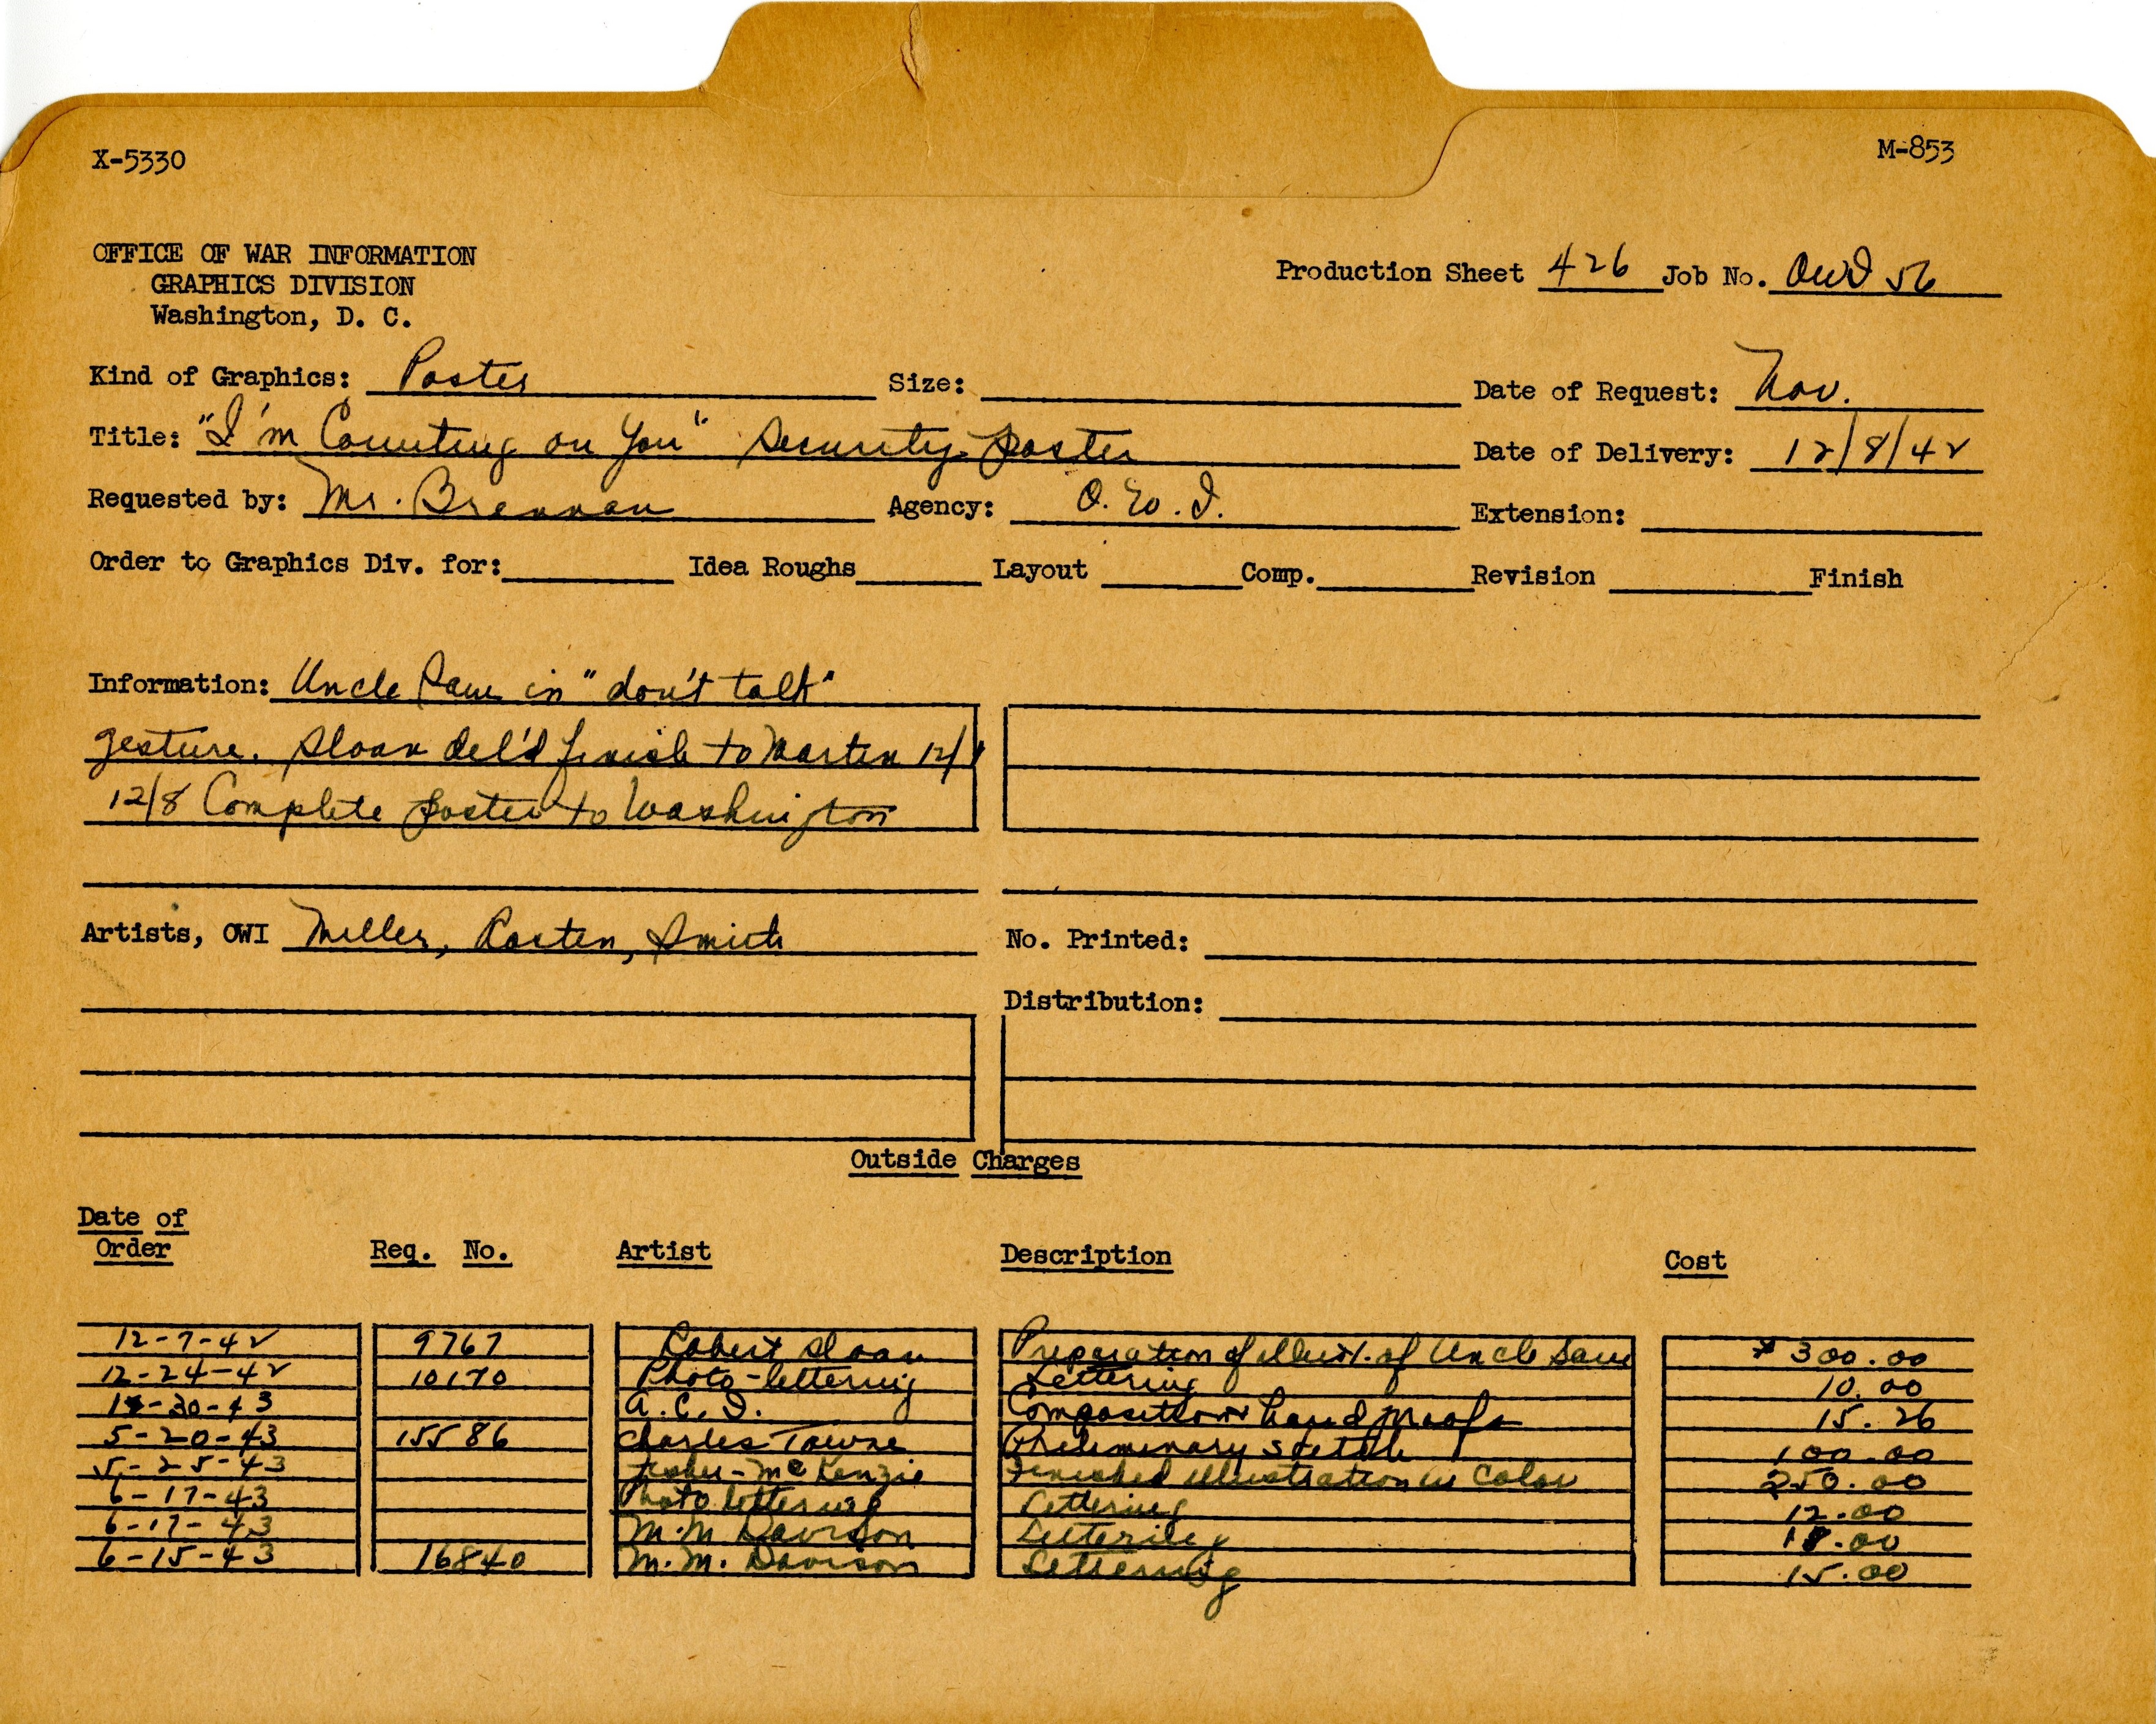 X-5330 M-853
OFFICE OF WAR INFORMATION
GRAPHICS DIVISION
Washington, D. C.
Production Sheet 426 Job No. OWI 56
Kind of Graphics: Poster Size: Date of Request: Nov.
Title: "I'm Counting on You" Security poster Date of Delivery: 12/8/42
Requested by: Mr. Brennan Agency: O.W.I. Extension:
Order to Graphics Div. for: Idea Roughs Layout Comp. Revision Finish
Information: Uncle Sam in "don't talk"
gesture. Sloan del'd finish to 12/
12/8 Complete poster to Washington
Artists, OWI Miller, Smith No. Printed:
Distribution:
Outside Charges
Date of
Order Req. No. Artist Description Cost
12-7-42 9767 Robert Sloan Preparation of illust. of Uncle Sam $300.00
12-24-42 10170 Photo-lettering Lettering 10.00
-30-43 Composition hand proofs 15.26
5-20-43 15586 Charles Towne Preliminary sketch 100.00
5-25-43 McKenzie Finished illustration in color 250.00
6-17-43 Photo lettering Lettering 12.00
6-17-43 M.M. Davison Lettering .00
6-15-43 16840 M.M. Davison Lettering 15.00